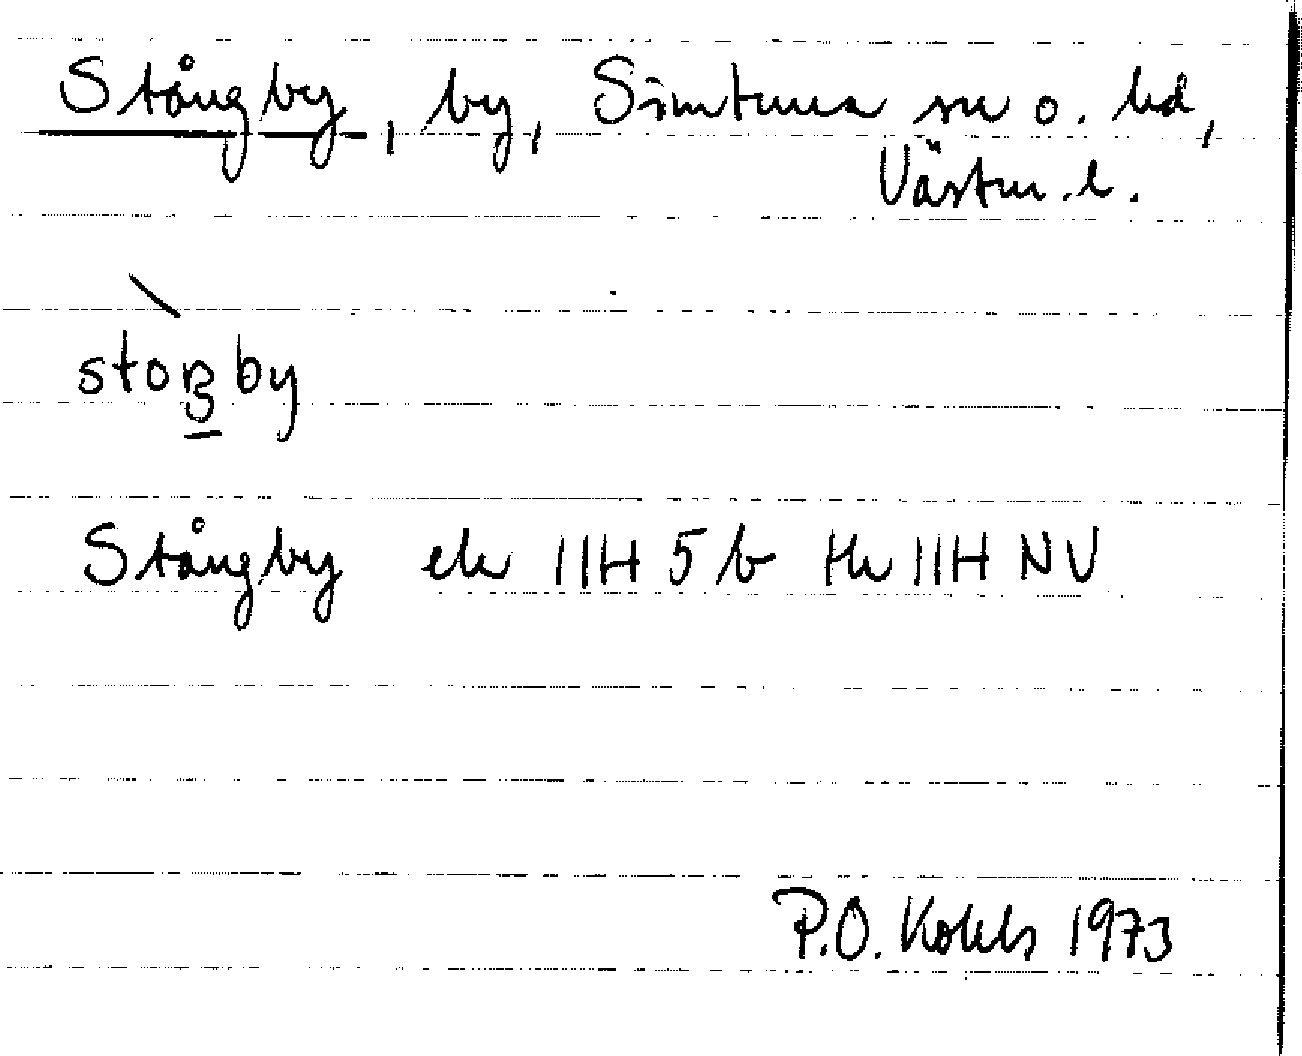 Stångby, by, Simtuna sn o. hd,
Västm. l.
Stångby ek 11H 5 b tk 11H NV
P.O. 1973